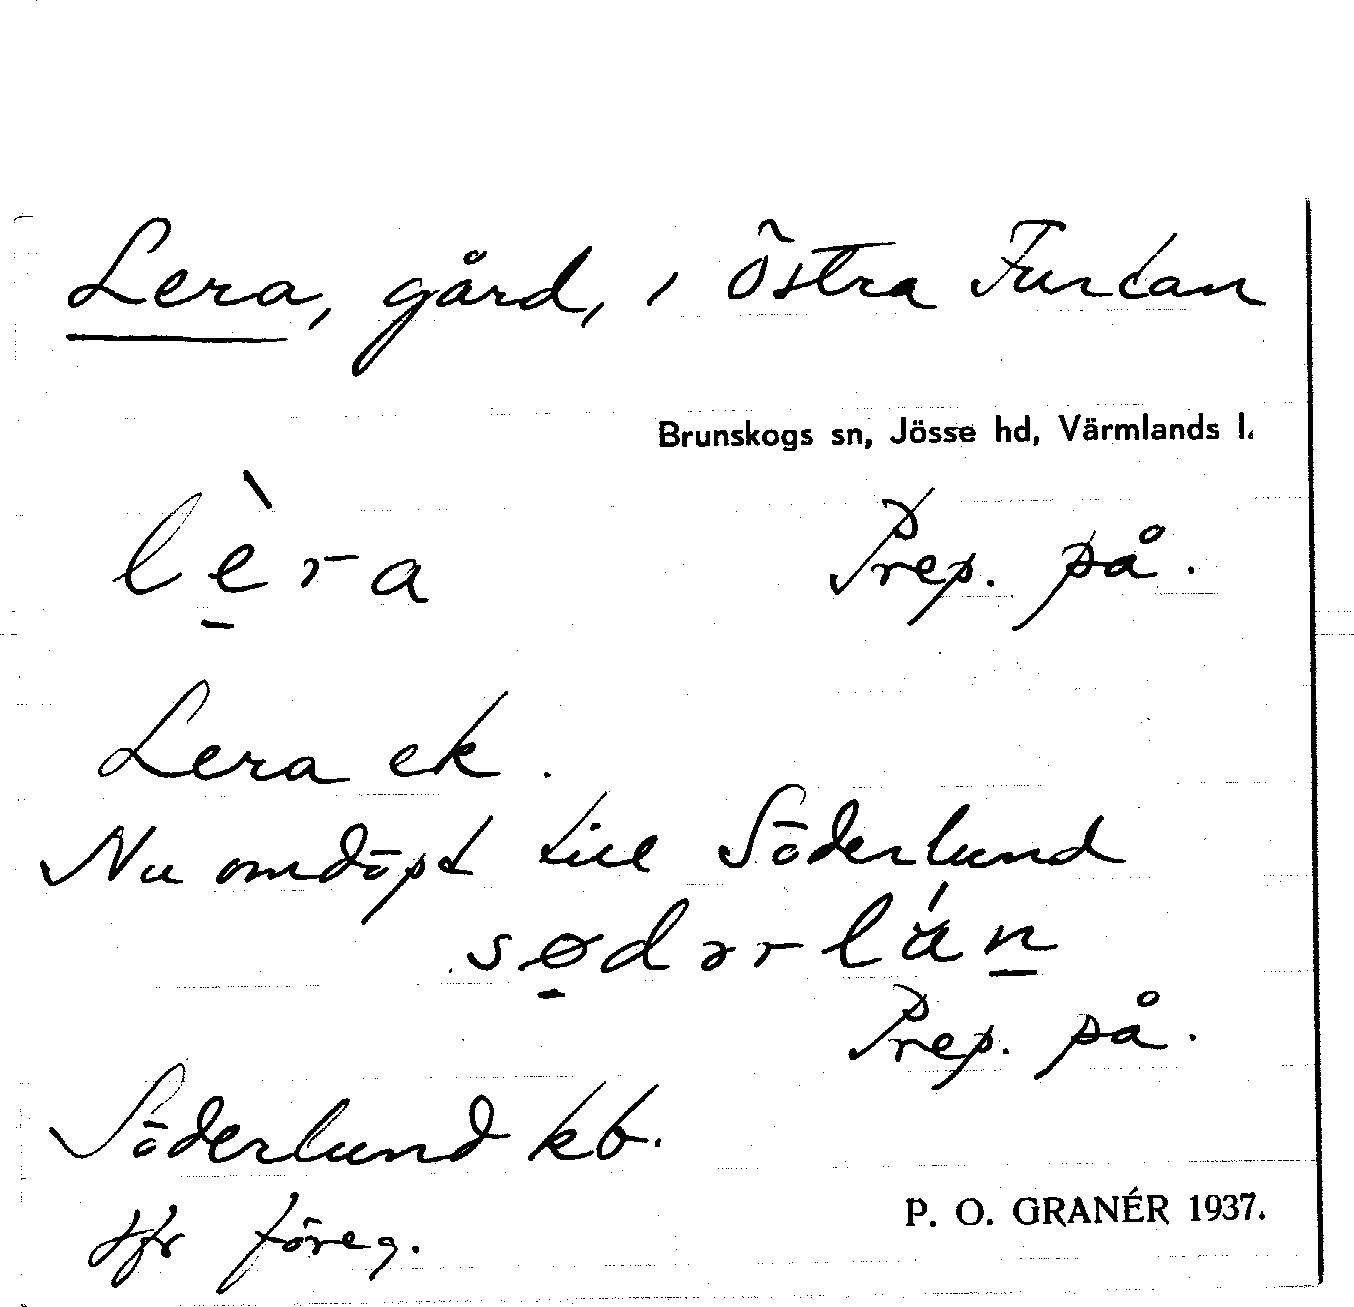 Lera, gård, i Östra Furtan
Brunskogs sn, Jösse hd, Värmlands l.
lèra Prep. på.
Lera ek.
Nu omdöpt till Söderlund
sødərlán
Prep. på.
Söderlund kb.
Jfr föreg.
P. O. GRANÉR 1937.